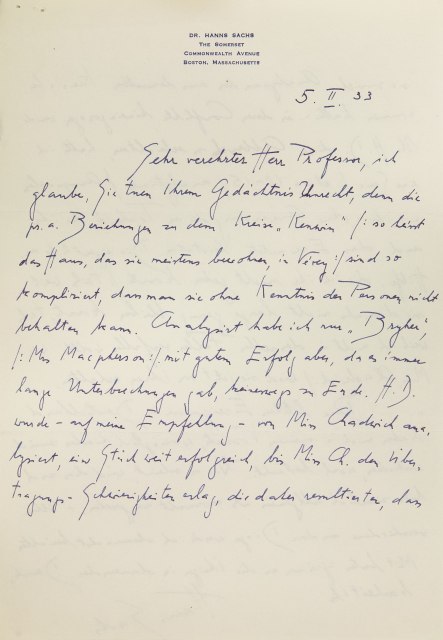 DR. HANNS SACHS
THE SOMERSET
COMMONWEALTH AVENUE
BOSTON, MASSACHUSETTS
5. II. 33
Sehr verehrter Herr Professor, ich
glaube, Sie tuen Ihrem Gedächtnis Unrecht, denn die
ps. a. Beziehungen zu dem Kreise „Kenwin" /: so heisst
das Haus, das sie meistens bewohnen, in Vevey :/ sind so
kompliziert, dass man sie ohne Kenntnis der Personen nicht
behalten kann. Analysiert habe ich nur „Bryher",
/: Mrs Macpherson :/ mit gutem Erfolg aber, da es immer
lange Unterbrechungen gab, keineswegs zu Ende. H. D.
wurde – auf meine Empfehlung – von Miss Chadwick ana-
lysiert, ein Stück weit erfolgreich, bis Miss Ch. den Über-
tragungs-Schwierigkeiten erlag, die daher resultierten, dass